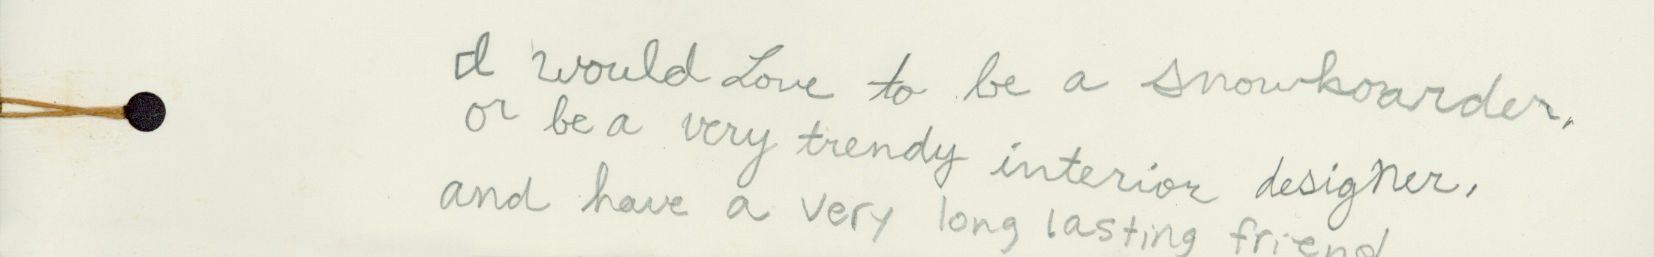 I would Love to be a snowboarder,
or be a very trendy interior designer,
and have a very long lasting friend